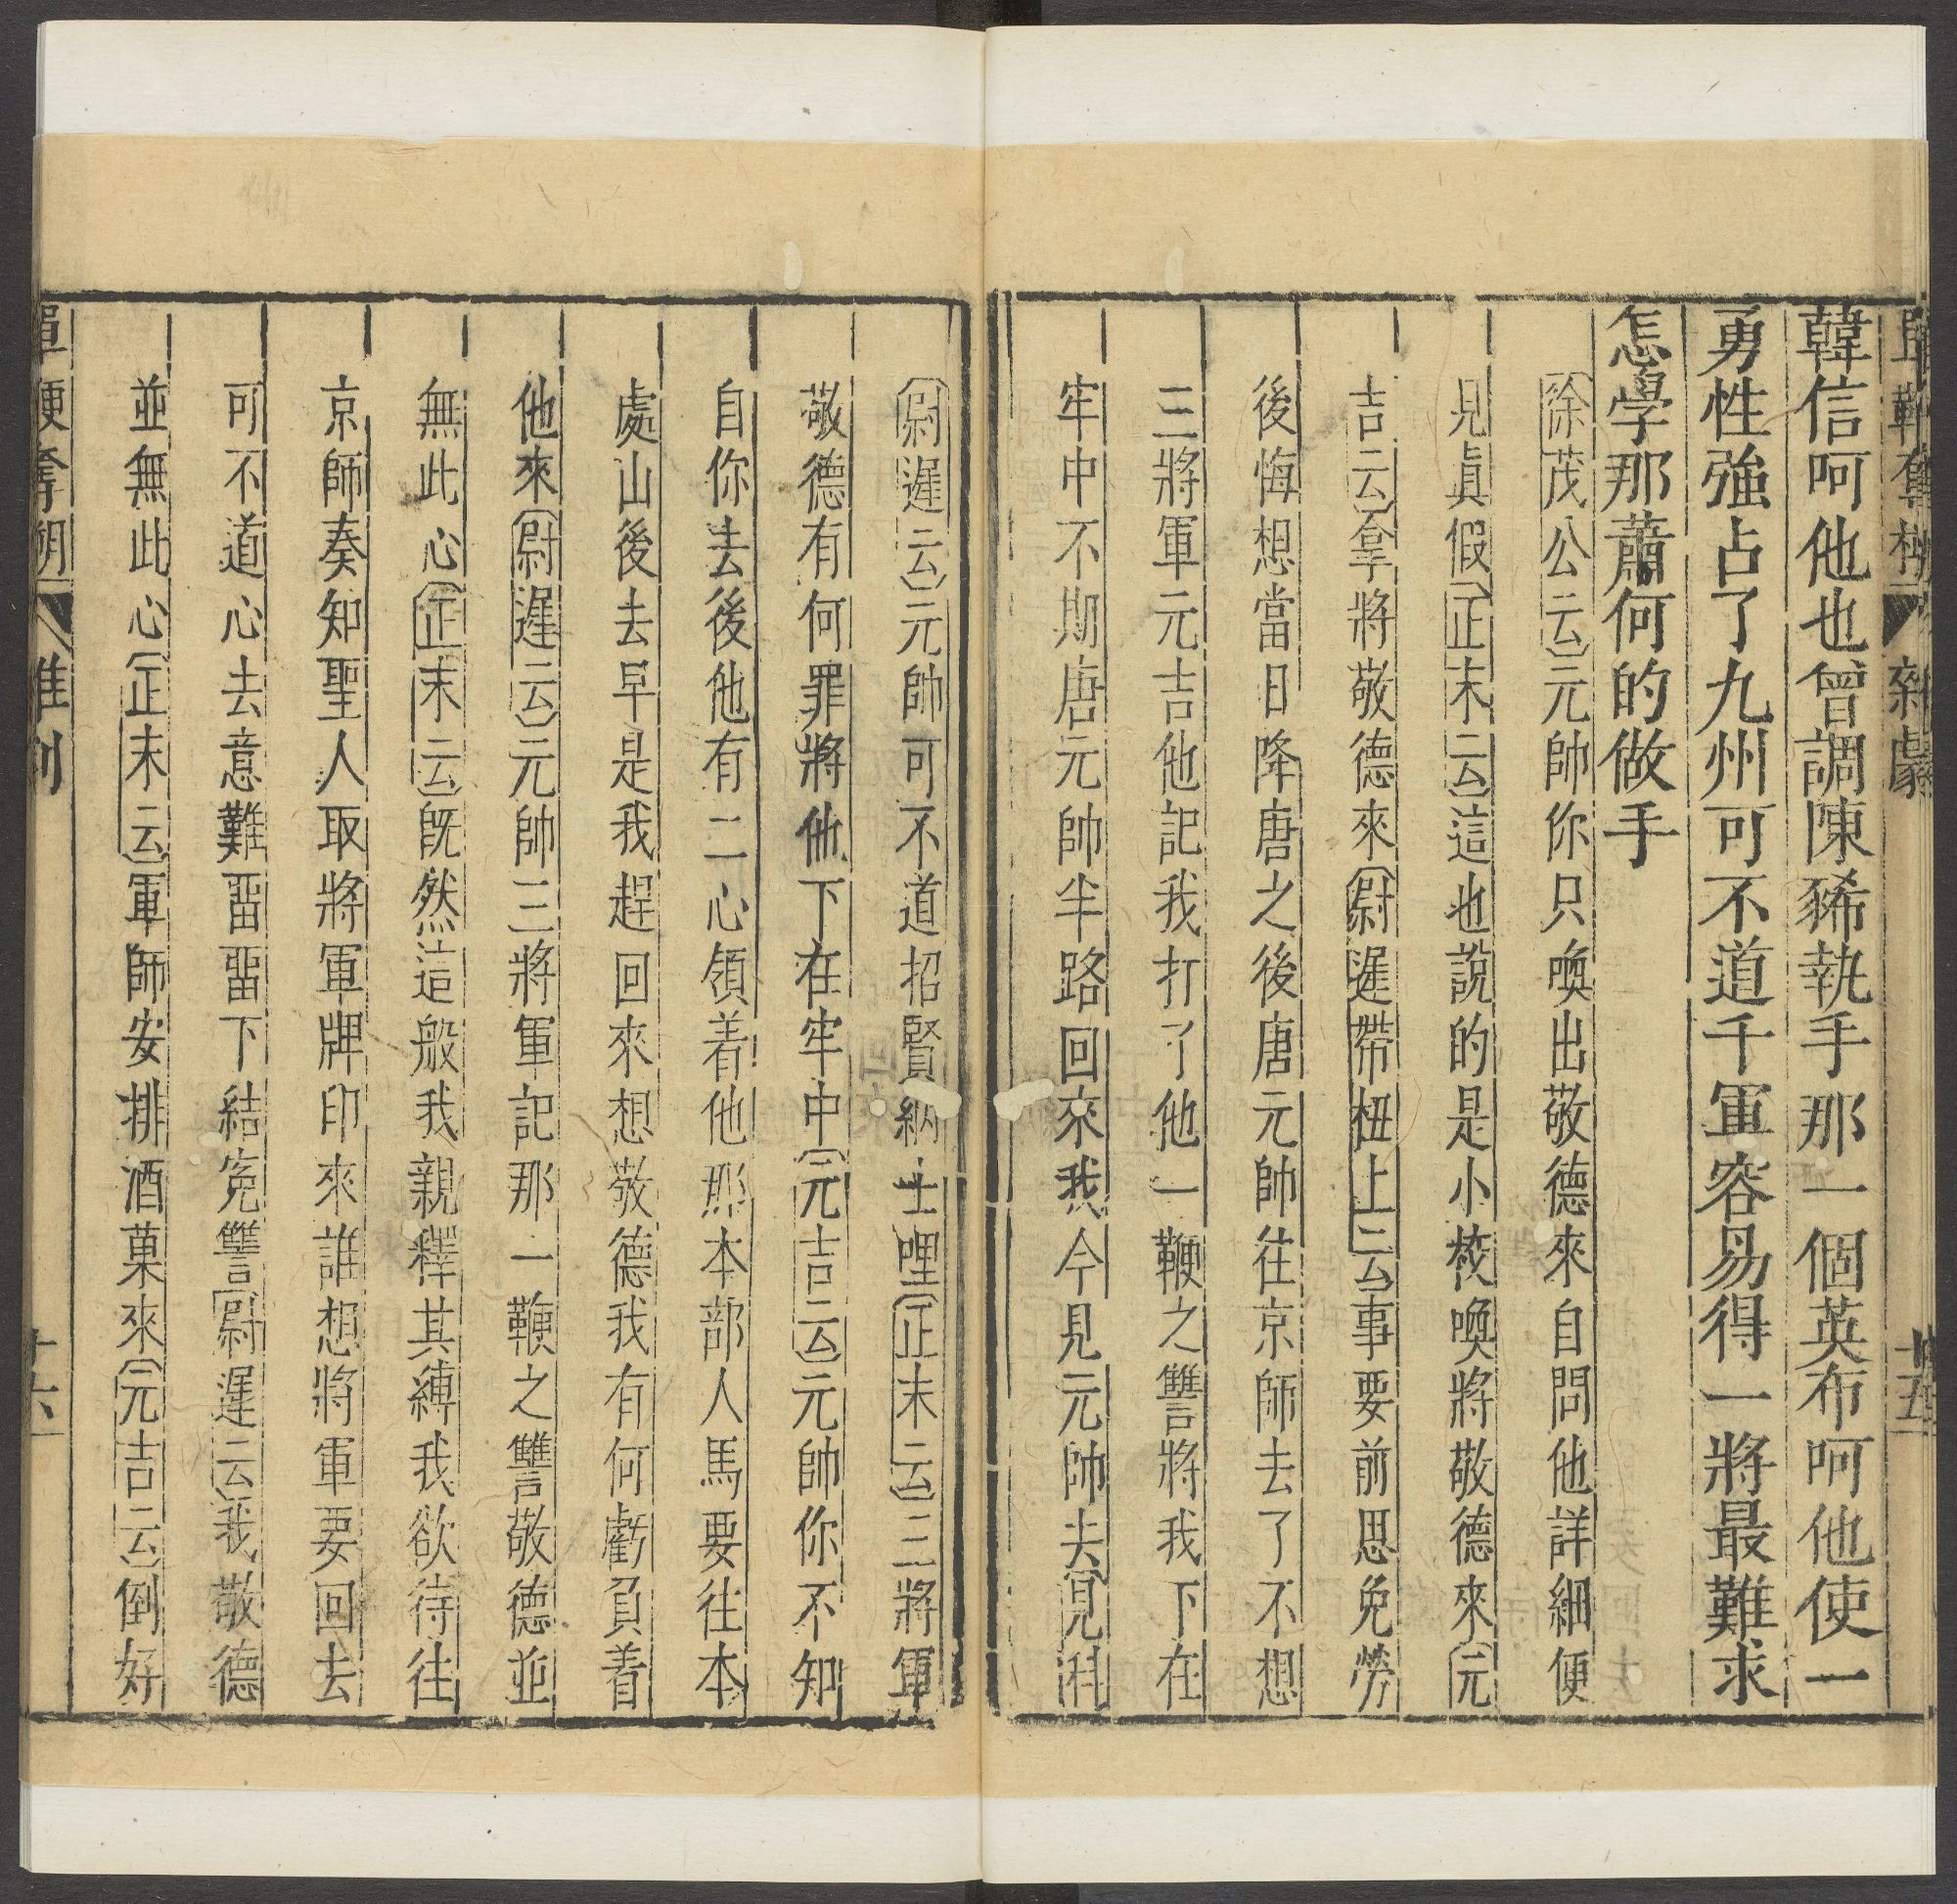 韓信呵他也曾調陳豨執手那一個英布呵他使一
勇性強占了九州可不道千軍容易得一將最難求
怎學那蕭何的做手
徐茂公云元帥你只喚出敬德來自問他詳細便
見真假正末云這也說的是小校喚將敬德來元
吉云拿將敬德來尉遲帶杻上云事要前思免勞
後悔想當日降唐之後唐元帥往京師去了不想
三將軍元吉他記我打了他一鞭之讐將我下在
牢中不期唐元帥半路回來我今見元帥去見科
尉遲云元帥可不道招賢納士哩正末云三將軍
敬德有何罪將他下在牢中元吉云元帥你不知
自你去後他有二心領着他那本部人馬要往本
處山後去早是我趕回來想敬德我有何虧負着
他來尉遲云元帥三將軍記那一鞭之讐敬德並
無此心正末云既然這般我親釋其縛我欲待往
京師奏知聖人取將軍牌印來誰想將軍要回去
可不道心去意難畱畱下結寃讐尉遲云我敬德
並無此心正末云軍師安排酒菓來元吉云倒好